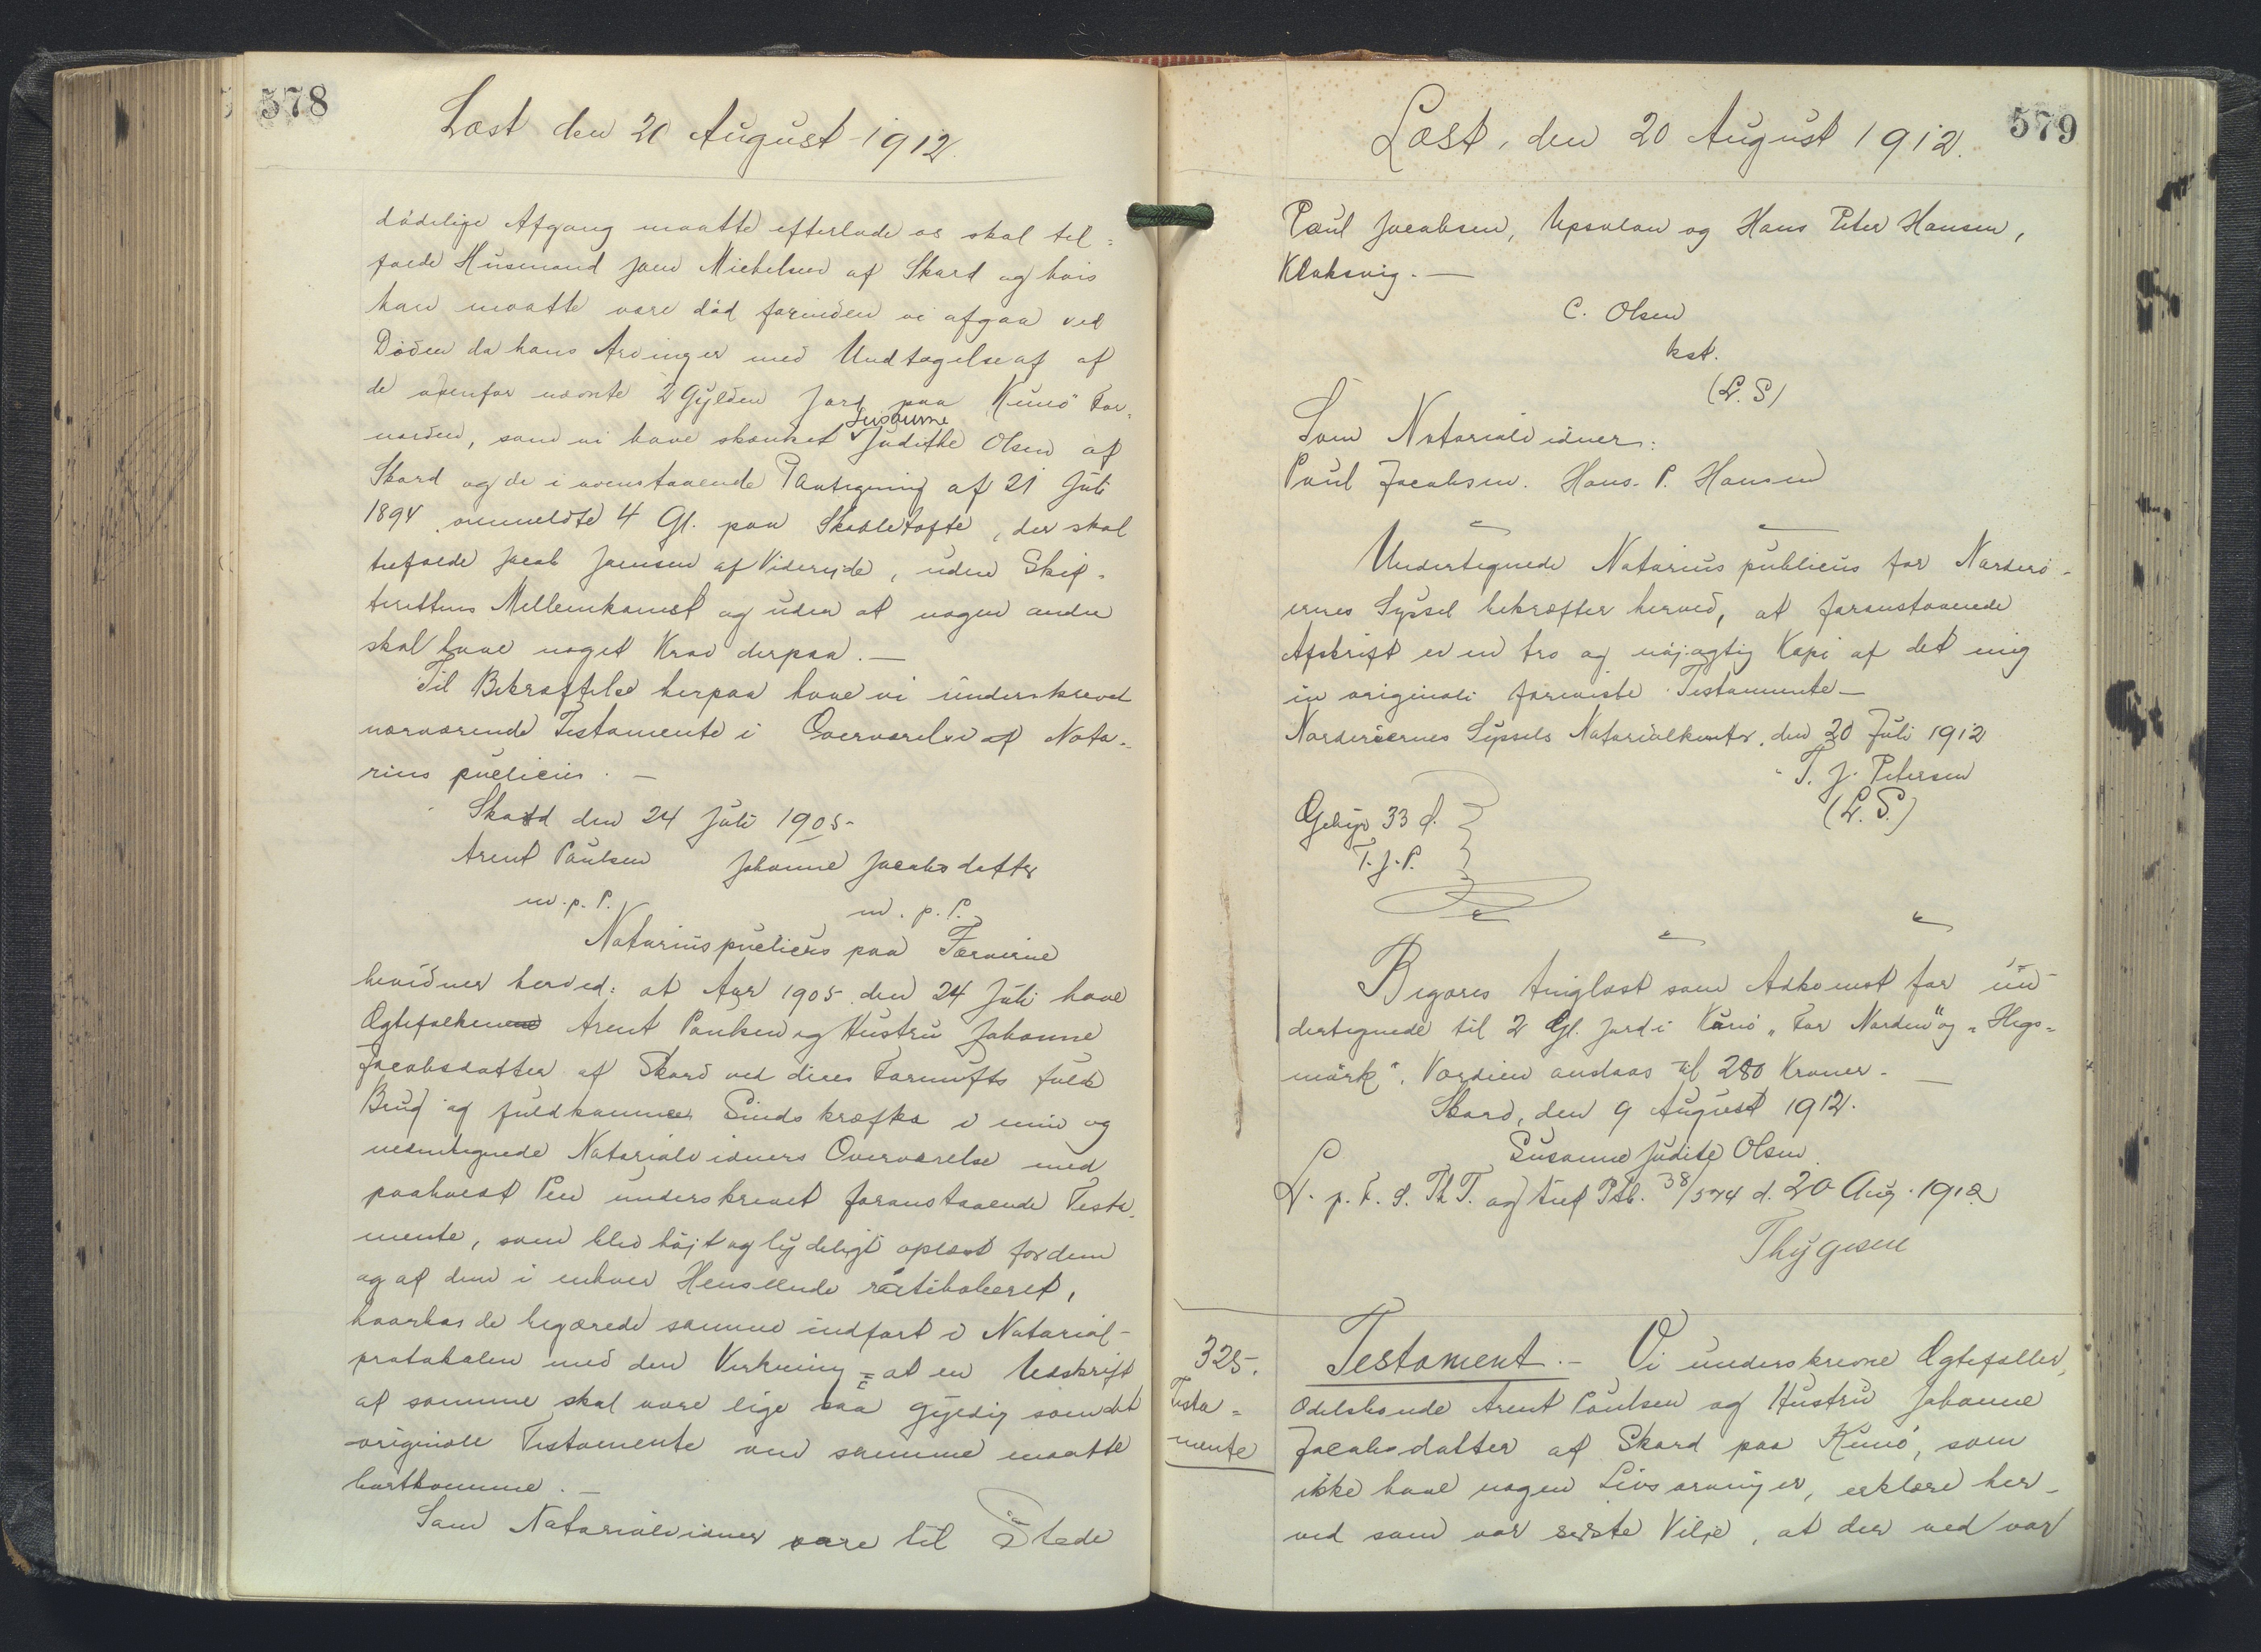 578
Læst den 20 August 1912.
dödelige Afgang maatte efterlade os skal til=
falde Husmand Joen Michelsen af Skard og hvis
han maatte være död forinden vi afgaa ved
Döden da hans Arvinger med Undtagelse af af
de ovenfor nævnte 2 Gylden Jord paa Kunö For
norden, som vi have skænket Susanne Judithe Olsen af
Skard og de i ovenstaaende Paategning af 21 Juli
1894 ommeldte 4 Gl. paa Skaaletofte, der skal
tilfalde Jacob Joensen af Videreide, uden Skif-
terettens Mellemkomst og uden at nogen anden
skal have noget Krav derpaa. —
Til Bekræftelse herpaa have vi underskrevet
nærværende Testamente i Overværelse af Nota-
rius publicus. —
Skard den 24 Juli 1905-
Arent Poulsen Johanne Jacobsdatter
m. p. P. m. p. P.
Notarius publicus paa Færøerne
bevidner herved: at Aar 1905 den 24 Juli have
Ægtefolkene Arent Poulsen og Hustru Johanne
Jacobsdatter af Skard ved deres Fornufts fulde
Brug og fuldkomne Sindskræfter i min og
medundertegnede Notarialvidners Overværelse med
paaholdt Pen underskrevet foranstaaende Testa-
mente, som blev höjt og lydeligt oplæst for dem
og af dem i enhver Henseende ratihaberet,
hvorhos de begærede samme indfört i Notarial-
protokolen med den Virkning = at en Udskrift
af samme skal være lige saa gyldig som det
originale Testamente om samme maatte
bortkomme. —
Som Notarialvidner vare til Stede
579
Læst, den 20 August 1912.
Poul Jacobsen, Upsalon og Hans Peter Hansen,
Klaksvig. —
C. Olsen
kst.
(L. S)
Som Notarialvidner:
Poul Jacobsen. Hans. P. Hansen
Undertegnede Notarius publicus for Norderö-
ernes Syssel bekræfter herved, at foranstaaende
Afskrift er en tro og nöjagtig Kopi af det mig
in originali foreviste Testamente —
Norderöernes Syssels Notarialkontor, den 20 Juli 1912
T. J. Petersen
(L. S.)
Gebyr 33 Ø.
T. J. P.
Begæres tinglæst som Adkomst for un-
dertegnede til 2 Gl. Jord i Kunö „For Norden" og „Hegs=
mörk". Værdien anslaas til 280 Kroner. —
Skard, den 9 August 1912.
Susanne Judite Olsen
L. p. F. S. Th T. og tilf Ptb. 38/574 d. 20 Aug. 1912
Thygesen
325.
Testa=
mente
Testament. — Vi underskrevne Ægtefæller,
Odelsbonde Arent Poulsen og Hustru Johanne
Jacobsdatter af Skard paa Kunö, som
ikke have nogen Livsarvinger, erklære her-
ved som vor sidste Vilje, at der ved vor